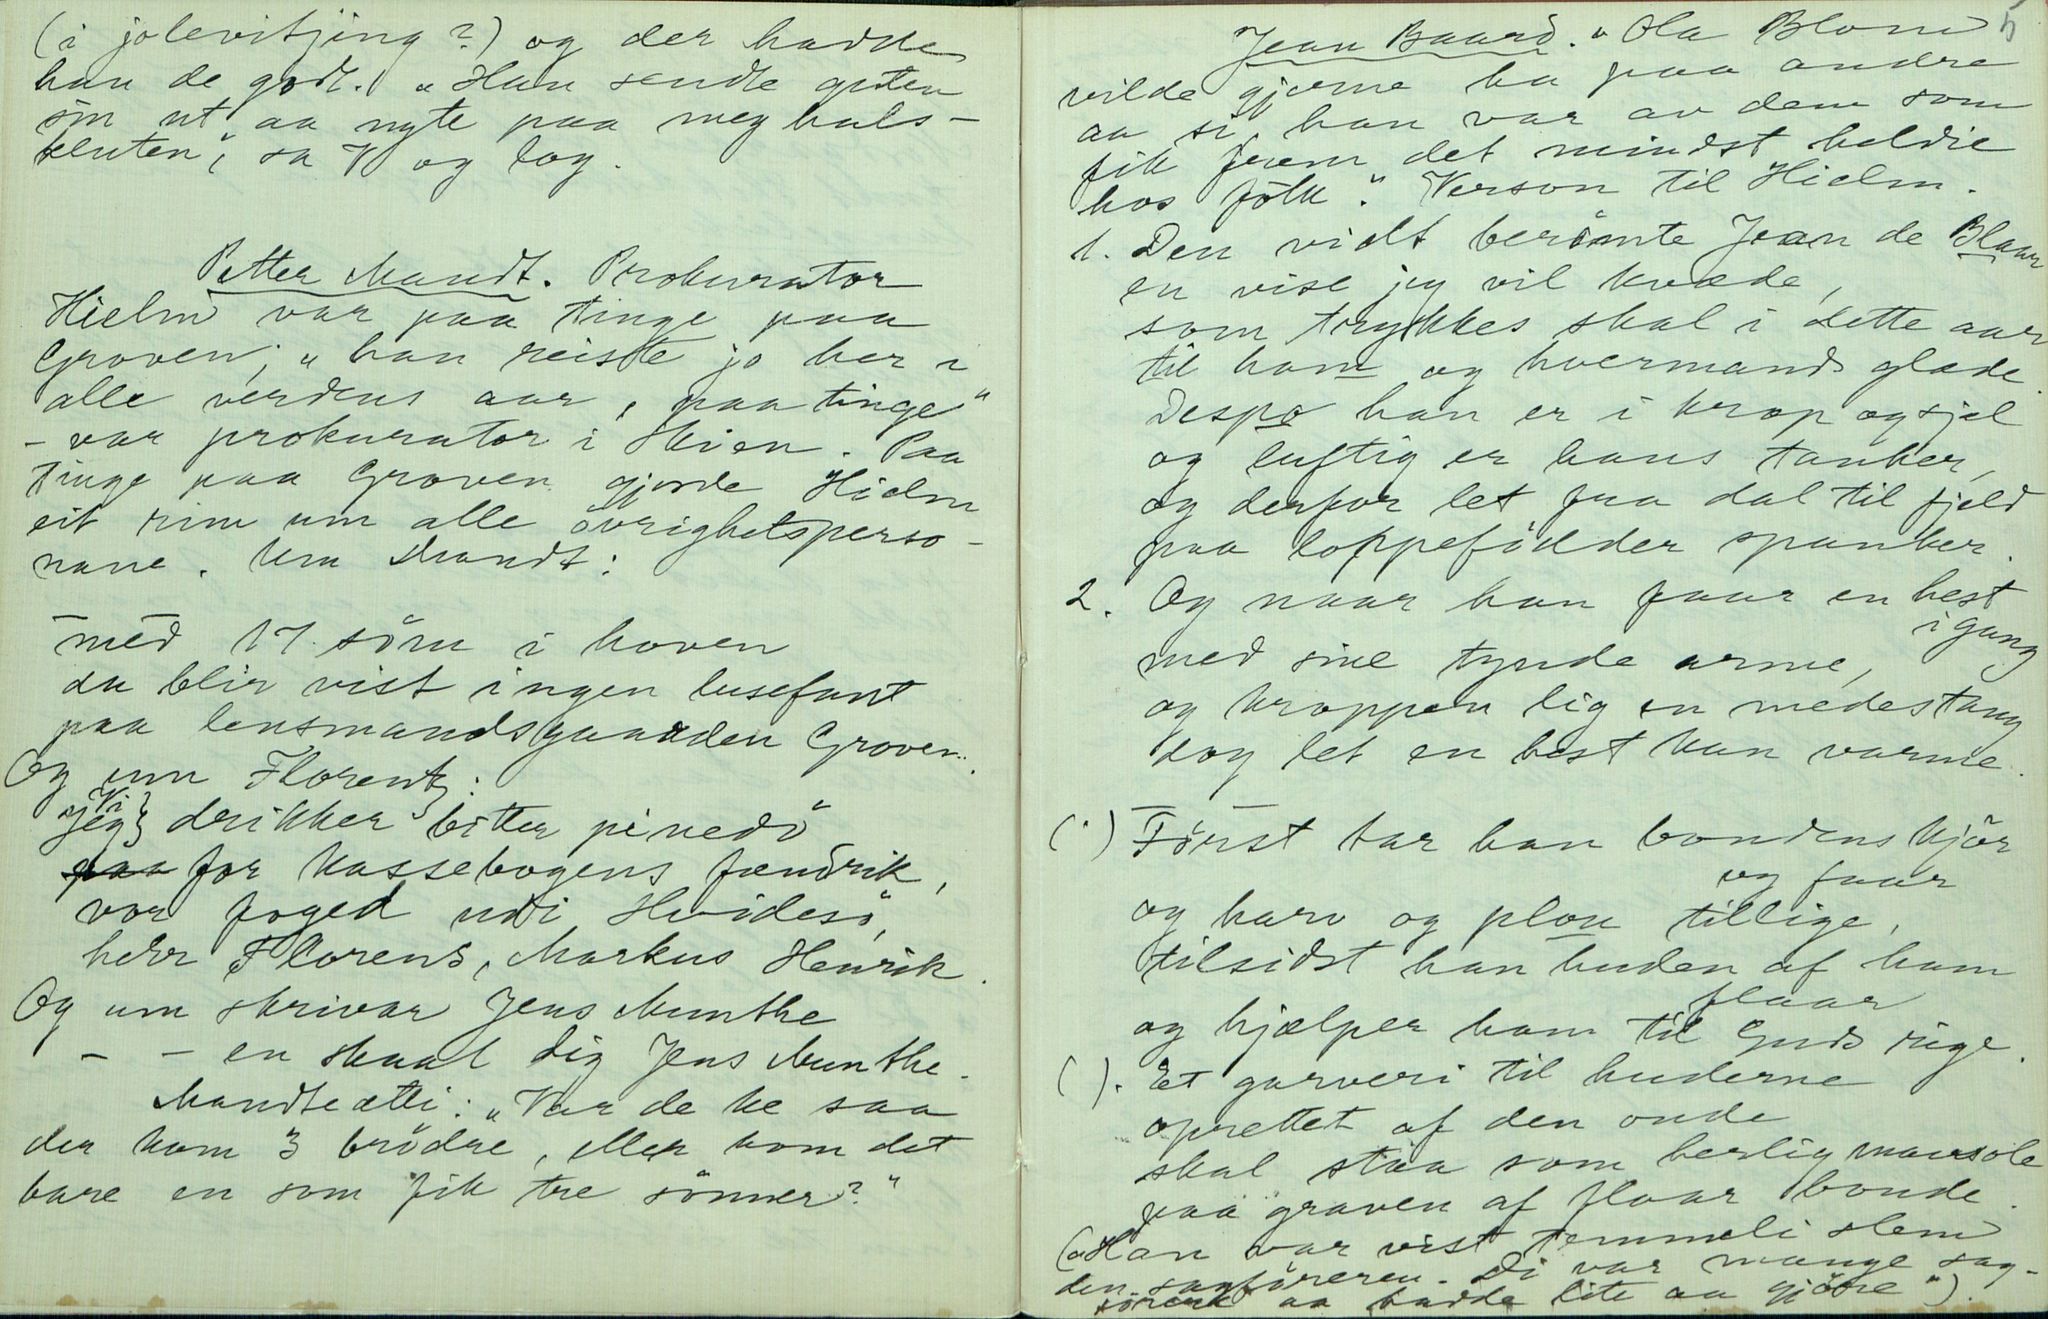 (i jolevitjing?) og der hadde
han de godt. „Han sendte guten
sin ut aa nyte paa meg hals-
kluten", sa V og log.
Petter Mandt. Prokurator
Hielm var paa tinge paa
Groven; „han reiste jo her i
alle verdens aar, paa tinge"
- var prokurator i Skien. Paa
tinge paa Groven gjorde Hielm
eit rim um alle övrighetsperso-
nane. Um Mandt:
med 17 söm i hoven
da blir vist ingen lusefant
paa lensmandsgaarden Groven.
Og um Florentz:
Vi
Jeg} drikker bitter pinedö
for kassebogens fændrik,
vor foged udi Hvidesö,
herr Florens, Markus Henrik.
Og um skrivar Jens Munthe
- - en skaal dig Jens Munthe.
Mandteætti: „Var de ke saa
der kom 3 brödre, eller kom det
bare en som fik tre sönner?"
5
Jean Baard. „Ola Blom
vilde gjerne ha paa andre
aa si, han var av dem som
fik frem det mindst heldie
hos folk". Verson til Hielm.
1. Den vidt berömte Jean de Blaar
en vise jeg vil kvæde,
som trykkes skal i dette aar
til ham og hvermands glæde.
Despo han er i krop og sjel
og luftig er hans tanker,
og derfor let fra dal til fjeld
paa loppefödder spanker.
2. Og naar han faar en hest
i gang
med sine tynde arme,
og kroppen lig en medestang
dog let en hest kan varme.
(') Först tar han bondens kjör
og faar
og harv og plou tillige,
tilsidst han huden af ham
flaar
og hjælper ham til Guds rige.
( ). Et garveri til huderne
oprettet af den onde
skal staa som herlig mausole
paa graven af flaar bonde.
(„Han var vist temmeli slem
den sagföreren. Di var mange sag-
förera aa hadde lite aa gjöre").